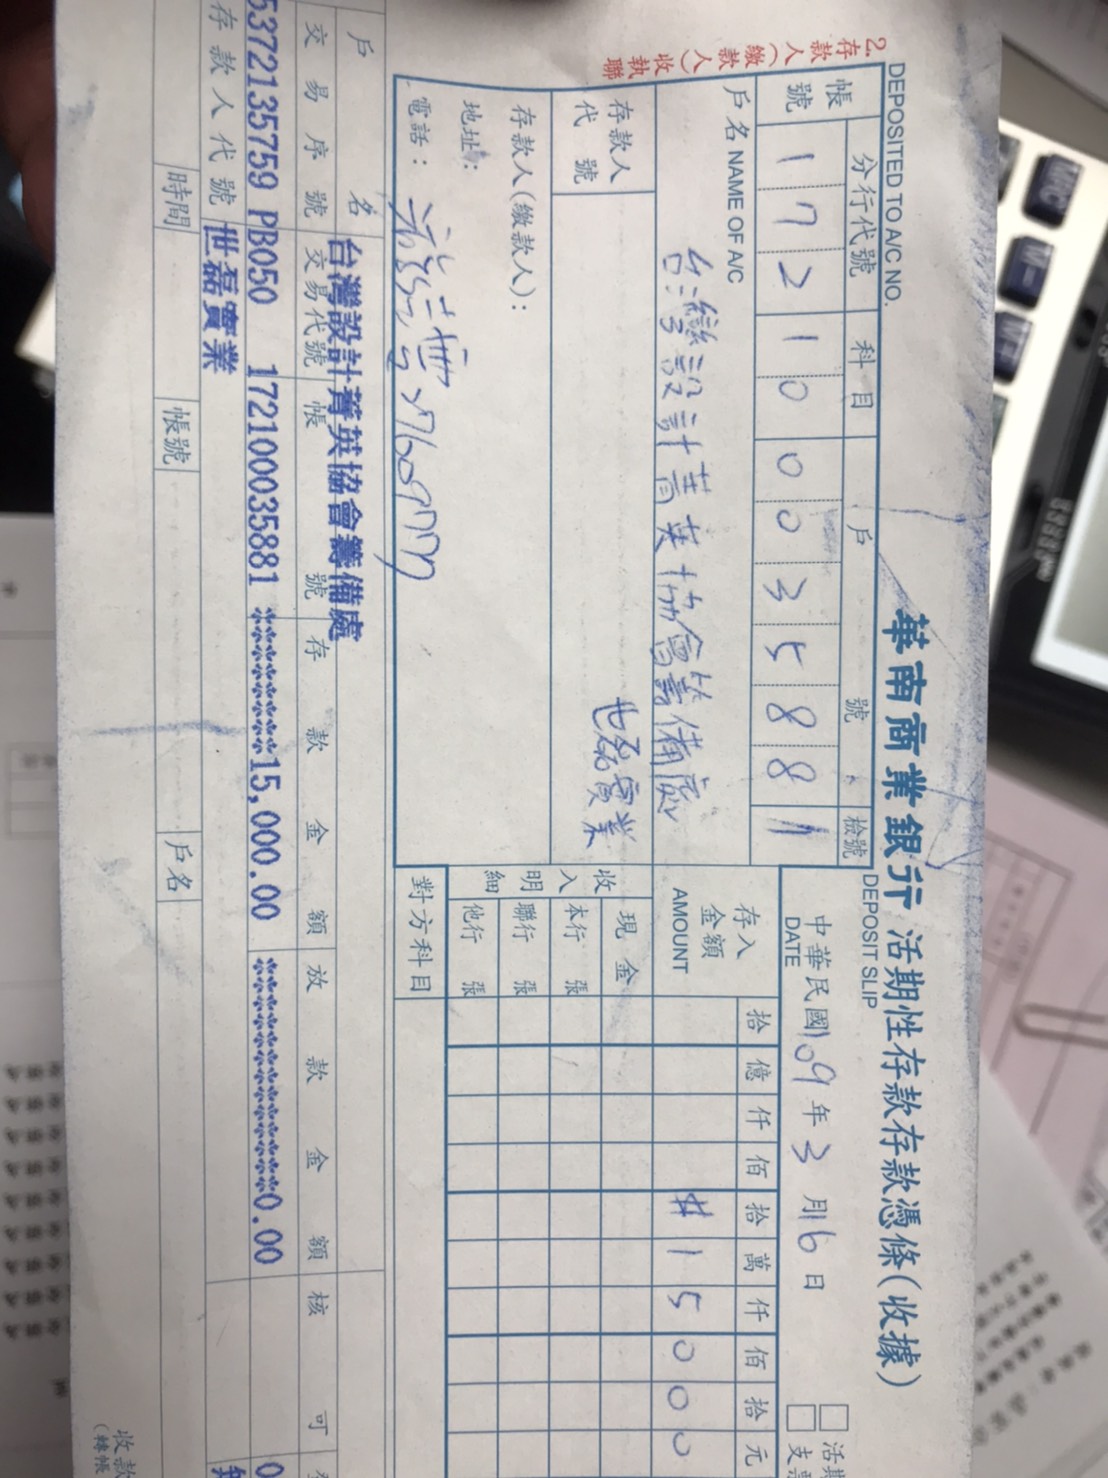 華南商業銀行 活期性存款存款憑條(收據)
DEPOSITED TO A/C NO.
DEPOSIT SLIP
2. 存款人(繳款人)收執聯
帳號 分行代號 科目 戶號 檢號
1 7 2 1 0 0 0 3 5 8 8 1
中華民國109年3月16日
DATE
戶名 NAME OF A/C
台灣設計菁英協會籌備處
存入金額
AMOUNT
拾 億 仟 佰 拾 萬 仟 佰 拾 元
# 1 5 0 0 0
存款人代號
世磊實業
收入明細
現金
本行 張
聯行 張
他行 張
存款人(繳款人):
地址:
電話:
對方科目
戶名
台灣設計菁英協會籌備處
交易序號 交易代號 帳號 存款金額 放款金額 核可
5372135759 PB050 172100035881 ************15,000.00 ****************0.00
存款人代號 世磊實業
時間 帳號 戶名
收款
(轉帳